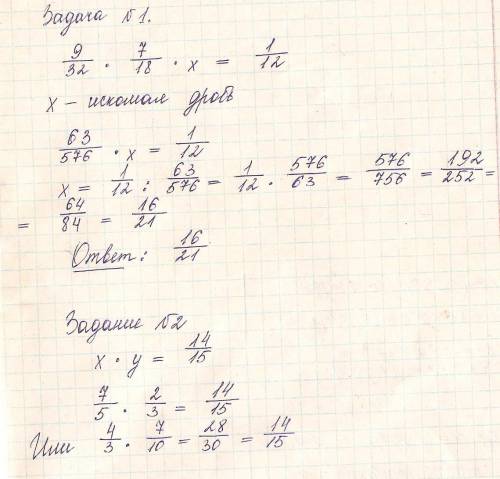 Задача №1.
9/32 · 7/18 · x = 1/12
x – искомая дробь
63/576 · x = 1/12
x = 1/12 : 63/576 = 1/12 · 576/63 = 576/756 = 192/252 =
= 64/84 = 16/21
Ответ: 16/21
Задание №2
x · y = 14/15
7/5 · 2/3 = 14/15
Или 4/3 · 7/10 = 28/30 = 14/15